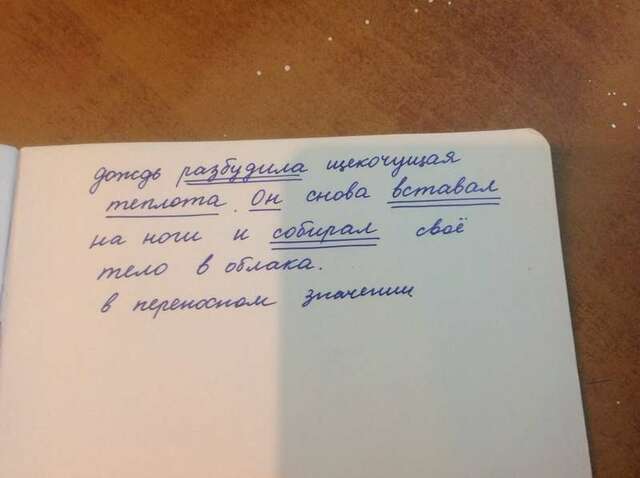 дождь разбудила щекочущая
теплота. Он снова вставал
на ноги и собирал своё
тело в облака.
в переносном значении